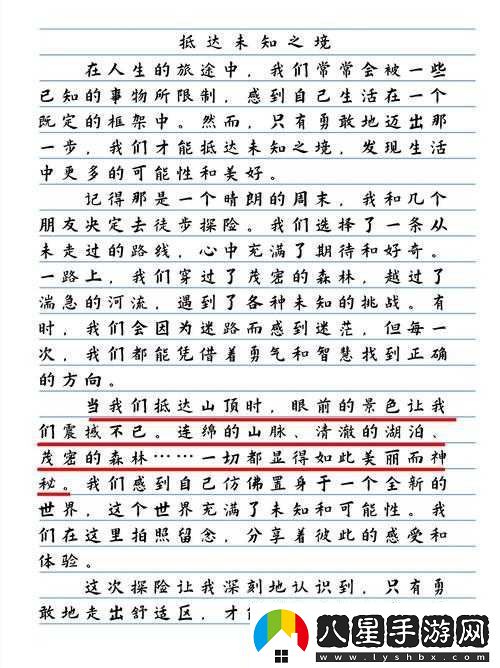 抵达未知之境
在人生的旅途中，我们常常会被一些
已知的事物所限制，感到自己生活在一个
既定的框架中。然而，只有勇敢地迈出那
一步，我们才能抵达未知之境，发现生活
中更多的可能性和美好。
记得那是一个晴朗的周末，我和几个
朋友决定去徒步探险。我们选择了一条从
未走过的路线，心中充满了期待和好奇。
一路上，我们穿过了茂密的森林，越过了
湍急的河流，遇到了各种未知的挑战。有
时，我们会因为迷路而感到迷茫，但每一
次，我们都能凭借着勇气和智慧找到正确
的方向。
当我们抵达山顶时，眼前的景色让我
们震撼不已。连绵的山脉、清澈的湖泊、
茂密的森林……一切都显得如此美丽而神
秘。我们感到自己仿佛置身于一个全新的
世界，这个世界充满了未知和可能性。我
们在这里拍照留念，分享着彼此的感受和
体验。
这次探险让我深刻地认识到，只有勇
敢地走出舒适区，才
八星手游网
www.lyshbx.com